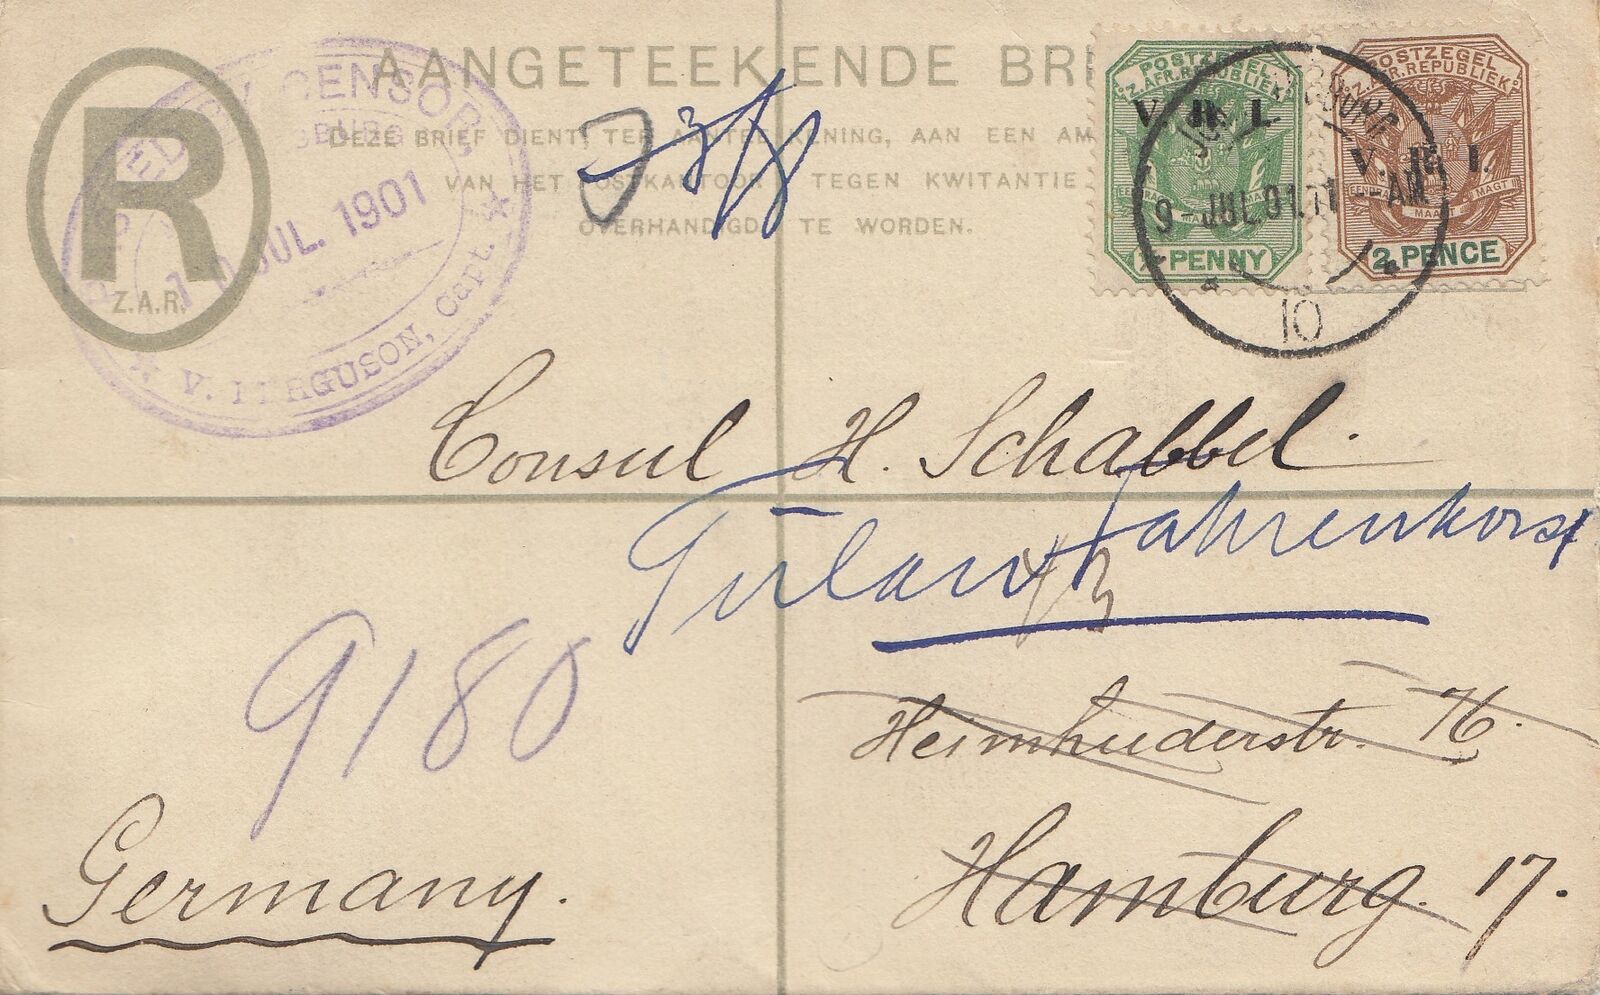 AANGETEEKENDE BRI
DEZE BRIEF DIENT TER AANTEEKENING, AAN EEN AM
VAN HET POSTKANTOOR TEGEN KWITANTIE
OVERHANDIGD TE WORDEN.
R
Z.A.R.
CENSOR,
10 JUL. 1901
V. FERGUSON, Capt.
POSTZEGEL
Z.AFR.REPUBLIEK
V. R. I.
PENNY
POSTZEGEL
Z.AFR.REPUBLIEK
V. R. I.
EENDRA MAAKT MAGT
2 PENCE
9 - JUL 01. 11 AM
10
Consul H. Schabbel.
Fahrenhorst
9180
Heimhuderstr. 76.
Hamburg. 17.
Germany.